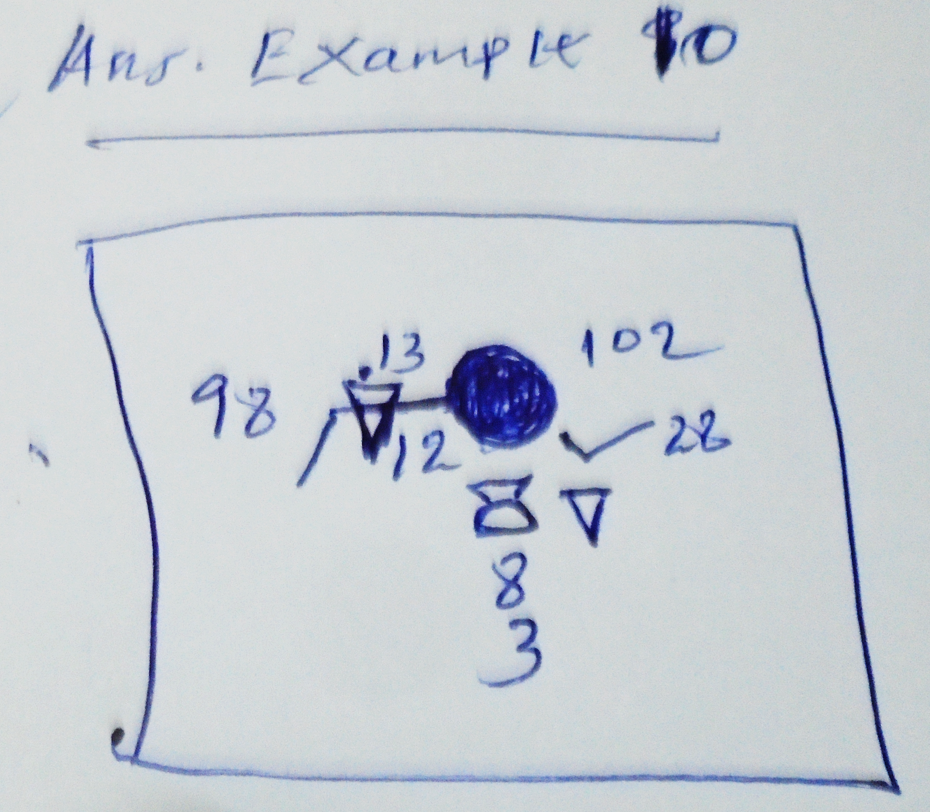 Ans. Example 10
13 102
98
12 28
8
3